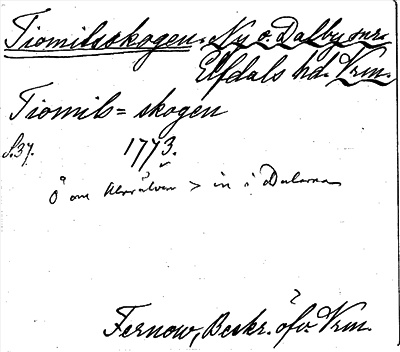 Tiomilsskogen. Ny o. Dalby snr.
Elfdals hd. Vrm.
Tiomils=skogen
S.37. 1773.
Ö om Klarälven > in i Dalarna
Fernow, Beskr. öfv. Vrm.